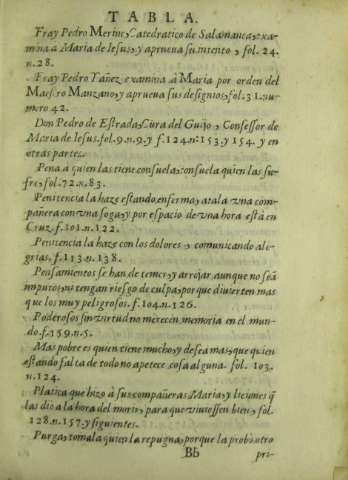 TABLA.
Fray Pedro Merino, Catedratico de Salamanca, exa-
mina a Maria de Iesus, y aprueua su intento, fol. 24.
n.28.
Fray Pedro Yañez examina à Maria por orden del
Maestro Manzano, y aprueua sus designios, fol. 31. nu-
mero 42.
Don Pedro de Estrada, Cura del Guijo, y Confessor de
Maria de Iesus. fol. 9. n. 9. y f. 124. n. 153. y 154. y en
otras partes.
Pena a quien las tiene consuela, consuela quien las su-
fre, fol. 72. n. 83.
Penitencia la haze estando enferma, atala vna com-
pañera con vna soga, y por espacio de vna hora està en
Cruz f. 101. n. 122.
Penitencia la haze con los dolores, y comunicando ale-
grias, f. 113. n. 138.
Pensamientos se han de temer, y arrojar aunque no seã
impuros, ni tengan riesgo de culpa, porque diuierten mas
que los muy peligrosos. f. 104. n. 126.
Poderosos sin virtud no merecen memoria en el mun-
do. f. 159. n. 5.
Mas pobre es quien tiene mucho, y desea mas, que quien
estando falta de todo no apetece cosa alguna. fol. 103.
n. 124.
Platica que hizo à sus compañeras Maria, y liciones q̃
las dio a la hora del morir, para que viuiessen bien, fol.
128. n. 157. y siguientes.
Purga, tomala quien la repugna, porque la probò otro
Bb
pri-